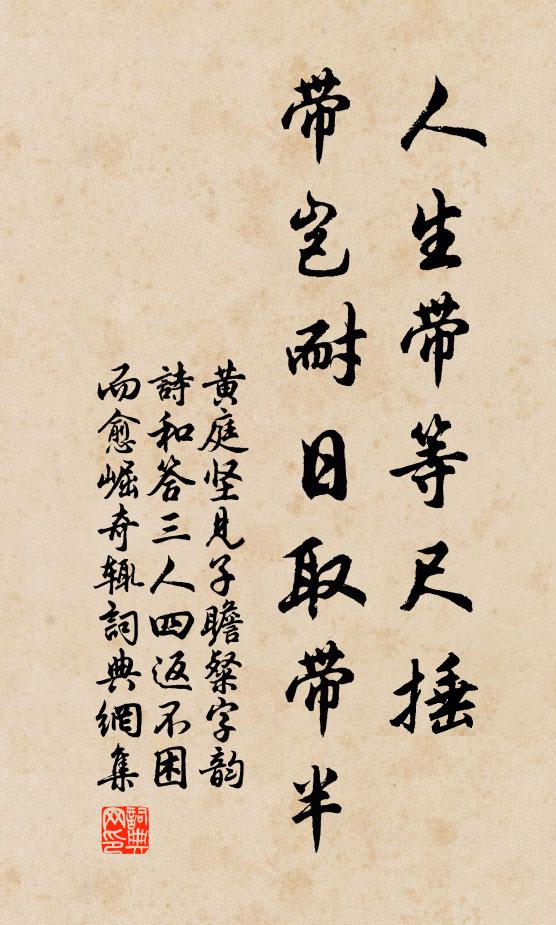 人生带等尺捶
带岂耐日取带半
黄庭坚見子瞻粲字韵
詩和答三人四返不困
而愈崛奇輒詞典網集
詞典
网印